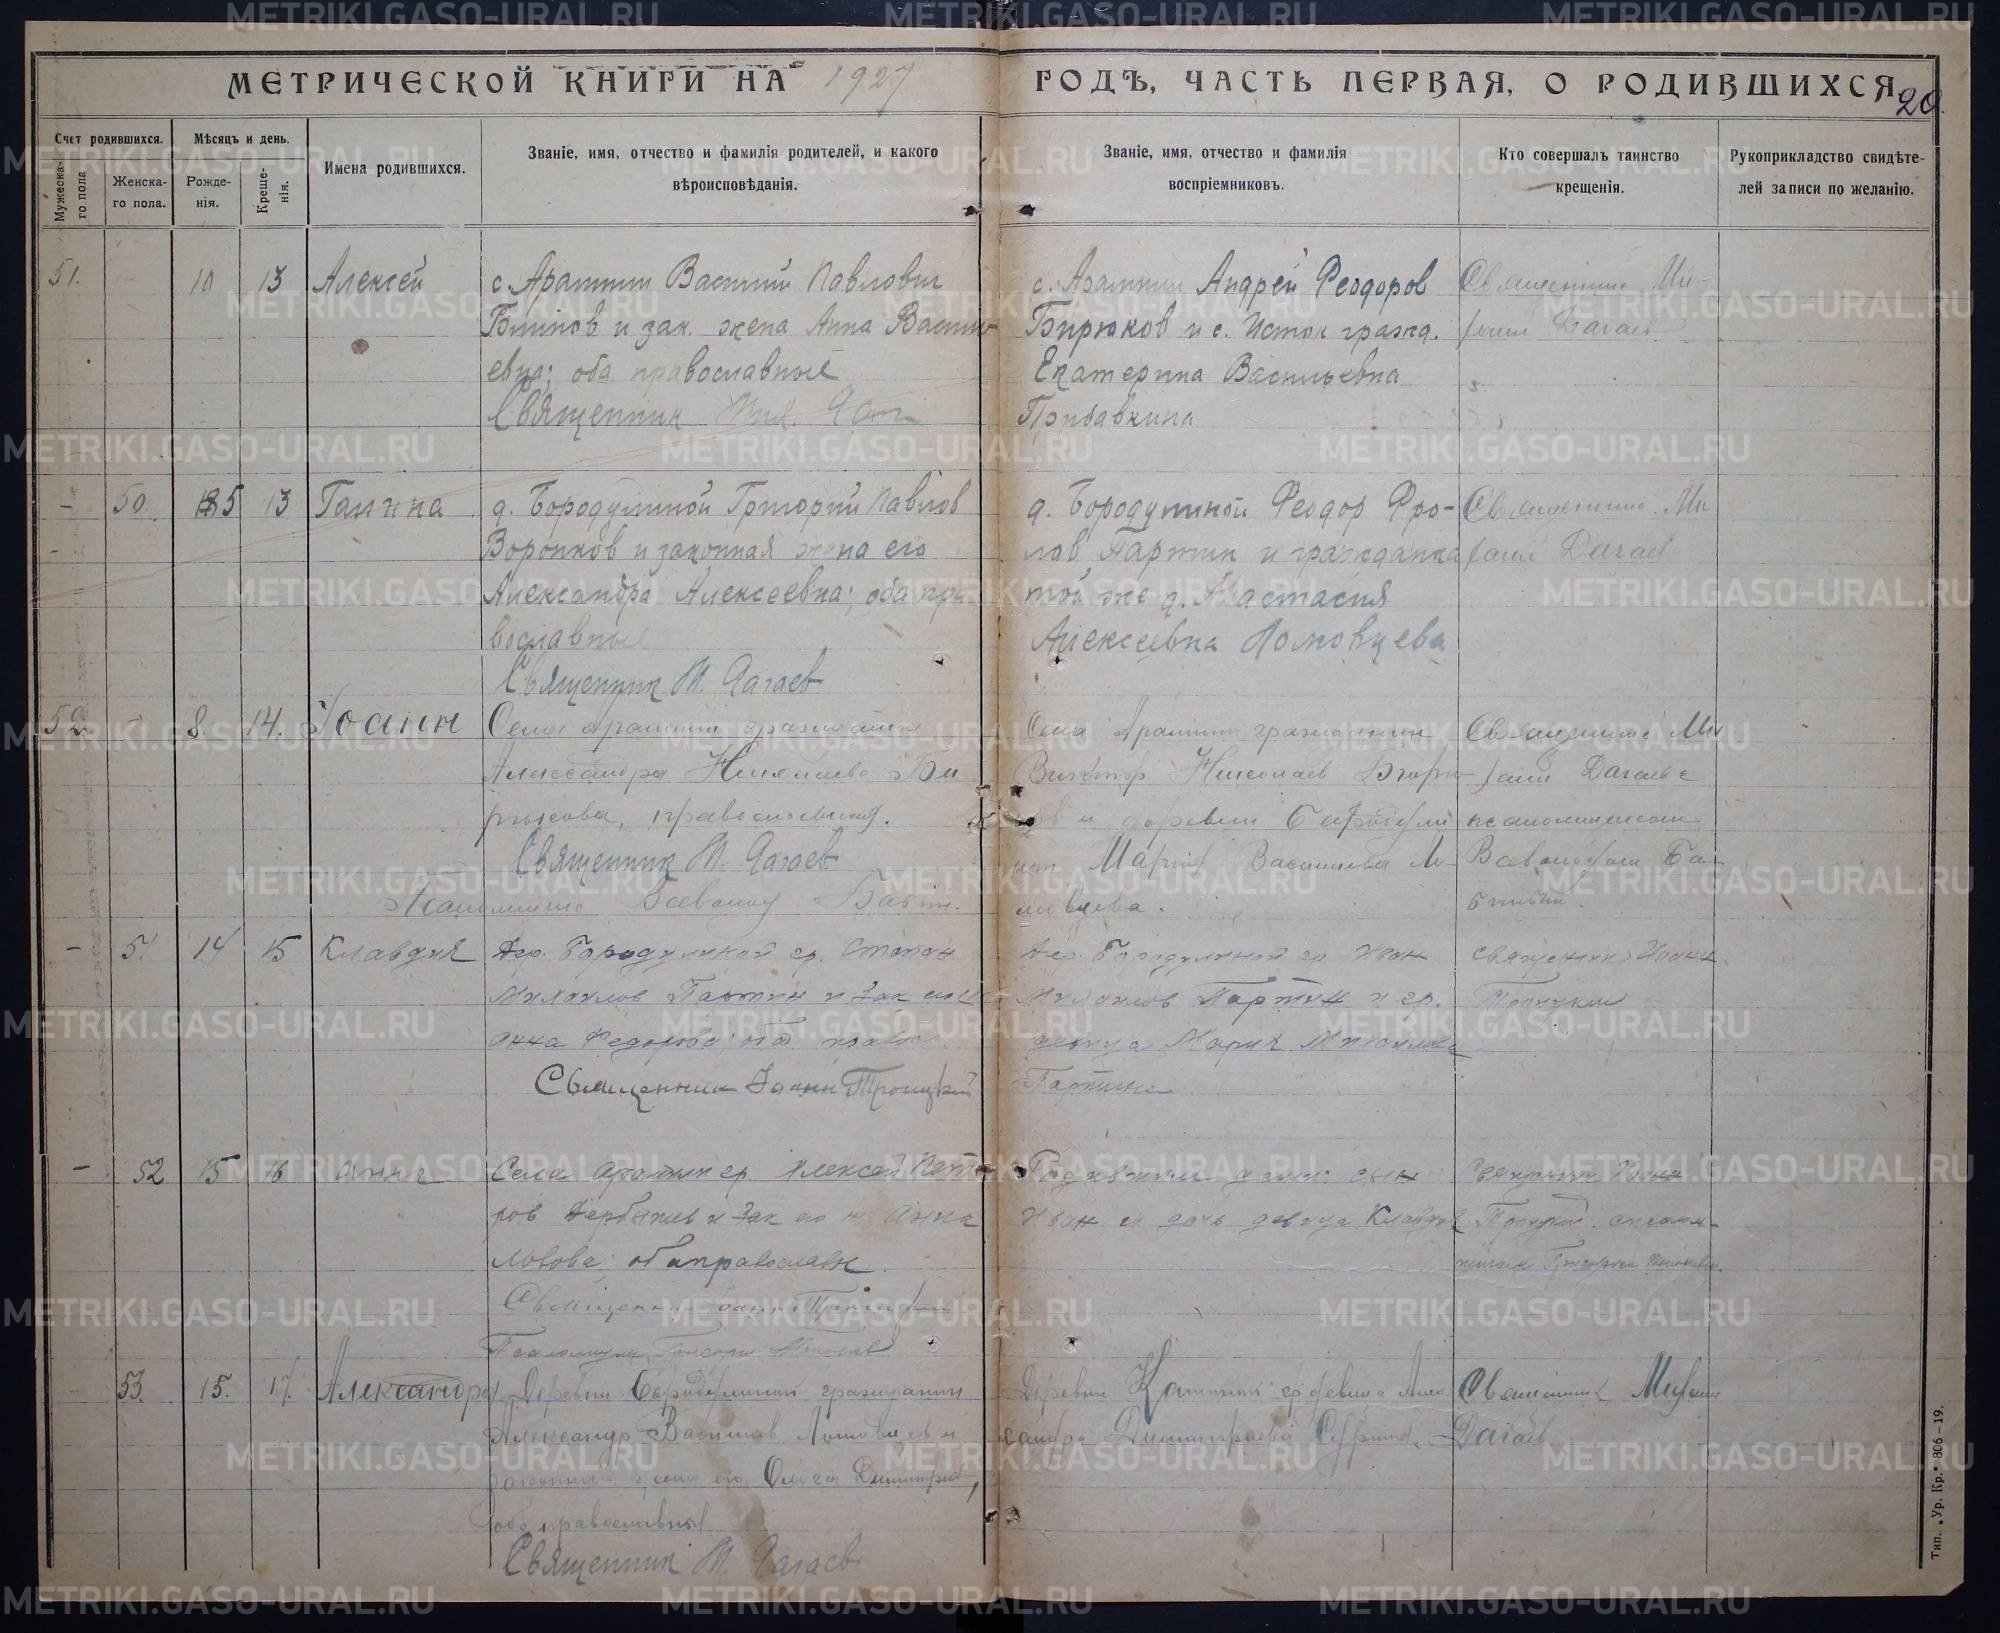 МЕТРИЧЕСКОЙ КНИГИ НА 1927 ГОДЪ, ЧАСТЬ ПЕРВАЯ, О РОДИВШИХСЯ
20.
Счет родившихся.
Мужеска-
го пола
Женска-
го пола.
Мѣсяцъ и день.
Рожде-
нія.
Креще-
нія.
Имена родившихся.
Званіе, имя, отчество и фамилія родителей, и какого
вѣроисповѣданія.
Званіе, имя, отчество и фамилія
воспріемниковъ.
Кто совершалъ таинство
крещенія.
Рукоприкладство свидѣте-
лей записи по желанію.
51. 10 13 Алексей
с. Арамил Василий Павлович
Блинов и зак. жена Анна Василь
евна; оба православные
Священник
с. Арамили Андрей Феодоров
Бирюков и с. Исток гражд.
Екатерина Васильевна
Прибавкина
Священник Ми-
хаил Дагаев
50. 5 13 Галина
д. Бородулиной Григорий Павлов
Воронков и законная жена его
Александра Алексеевна; оба пра
вославные
Священник М. Дагаев
д. Бородулиной Феодор Фро-
лов Партин и гражданка
той же д. Анастасия
Алексеевна Ломовцева
Священник Ми
хаил Дагаев
52. 8. 14. Іоанн
Села Арамили гражданка
Александра Николаева Би
рюкова, православная.
Священник М. Дагаев
Псаломщик Всеволод
Села Арамили гражданин
Виктор Николаев Бирю-
ков и деревни Бородули
ной Мария Васильева Ло-
мовцева.
Священник Ми
хаил Дагаев с
псаломщиком
Всеволодом Ба-
51 14 15 Клавдия
Дер. Бородулиной гр. Степан
Михаилов Партин и зак его ж
Анна Федорова оба правос
Священник Іоанн Троицкий
Дер. Бородулиной гр Иван
Михаилов Партин и гр.
девица Мария Михаилова
Партина
Священник Иоанн
Троицкий
52 15 16 Анна
Села Арамили гр Алексей Пет
ров Дербышев и зак его ж Анна
Львова; оба православн.
Священник Іоанн Троицкий
Псаломщик Григорий
сын
Иван и дочь девица Клавдия
Священник Иоанн
Троицкий с псалом-
щиком Григорием
53. 15. 17. Александра
Деревни Бородулиной гражданин
Александр Васильев Ломовцев и
законная жена его Ольга Димитриева,
оба православные
Священник М. Дагаев
Деревни гр девица Алек
сандра Димитриева
Священник Михаил
Дагаев
Тип. „Ур. Кр.“ 806—19.
METRIKI.GASO-URAL.RU